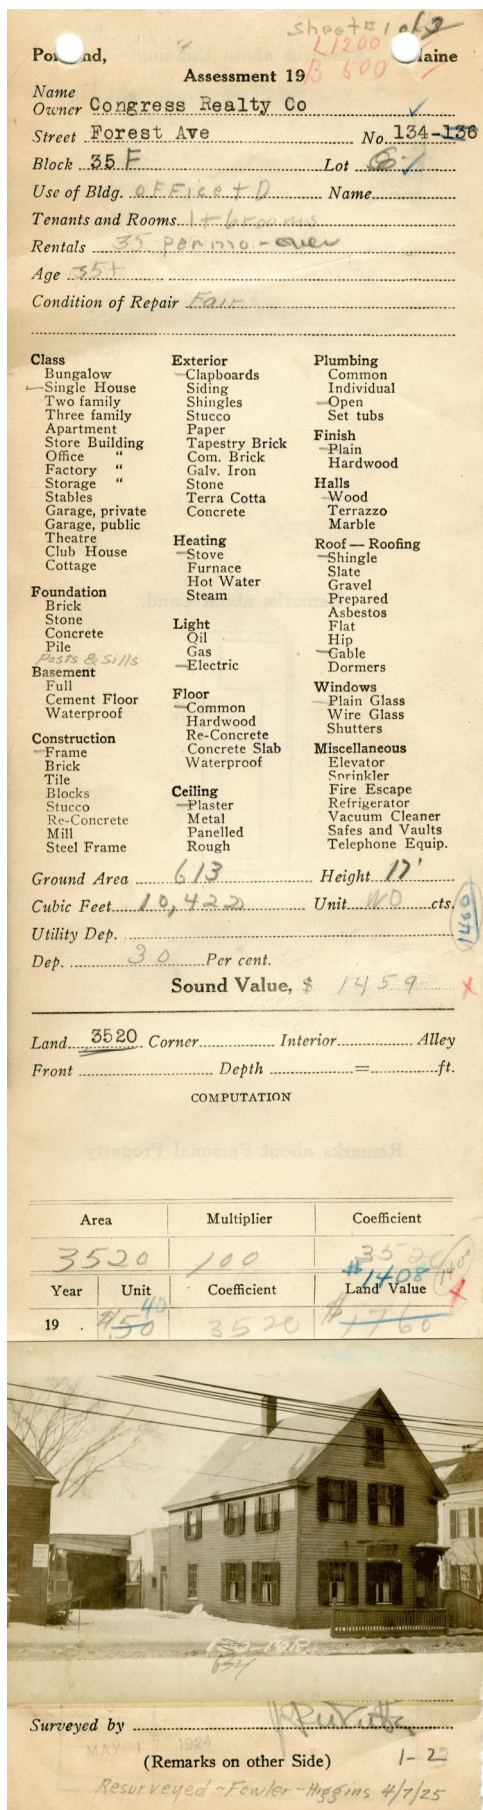 Sheet #1 of 3
L1200
Maine
Assessment 19
B 600
Name
Owner Congress Realty Co
Street Forest Ave No. 134-136
Block 35 F Lot
Use of Bldg. office + D Name
Tenants and Rooms 1 + 6 rooms
Rentals 35 per mo - over
Age 35+
Condition of Repair Fair
Class
Bungalow
Single House
Two family
Three family
Apartment
Store Building
Office "
Factory "
Storage "
Stables
Garage, private
Garage, public
Theatre
Club House
Cottage
Foundation
Brick
Stone
Concrete
Pile
Posts & Sills
Basement
Full
Cement Floor
Waterproof
Construction
Frame
Brick
Tile
Blocks
Stucco
Re-Concrete
Mill
Steel Frame
Exterior
Clapboards
Siding
Shingles
Stucco
Paper
Tapestry Brick
Com. Brick
Galv. Iron
Stone
Terra Cotta
Concrete
Heating
Stove
Furnace
Hot Water
Steam
Light
Oil
Gas
Electric
Floor
Common
Hardwood
Re-Concrete
Concrete Slab
Waterproof
Ceiling
Plaster
Metal
Panelled
Rough
Plumbing
Common
Individual
Open
Set tubs
Finish
Plain
Hardwood
Halls
Wood
Terrazzo
Marble
Roof — Roofing
Shingle
Slate
Gravel
Prepared
Asbestos
Flat
Hip
Gable
Dormers
Windows
Plain Glass
Wire Glass
Shutters
Miscellaneous
Elevator
Sprinkler
Fire Escape
Refrigerator
Vacuum Cleaner
Safes and Vaults
Telephone Equip.
Ground Area 613 Height 17'
Cubic Feet 10,422 Unit NO cts.
1460
Utility Dep.
Dep. 30 Per cent.
Sound Value, $ 1459
Land 3520 Corner Interior Alley
Front Depth = ft.
COMPUTATION
Area Multiplier Coefficient
3520 100 35
$1408
Year Unit Coefficient Land Value
40
19 . $.50 3520 $1760
634
Surveyed by
MAY 17 1924
(Remarks on other Side)
Resurveyed - Fowler - Higgins 4/7/25